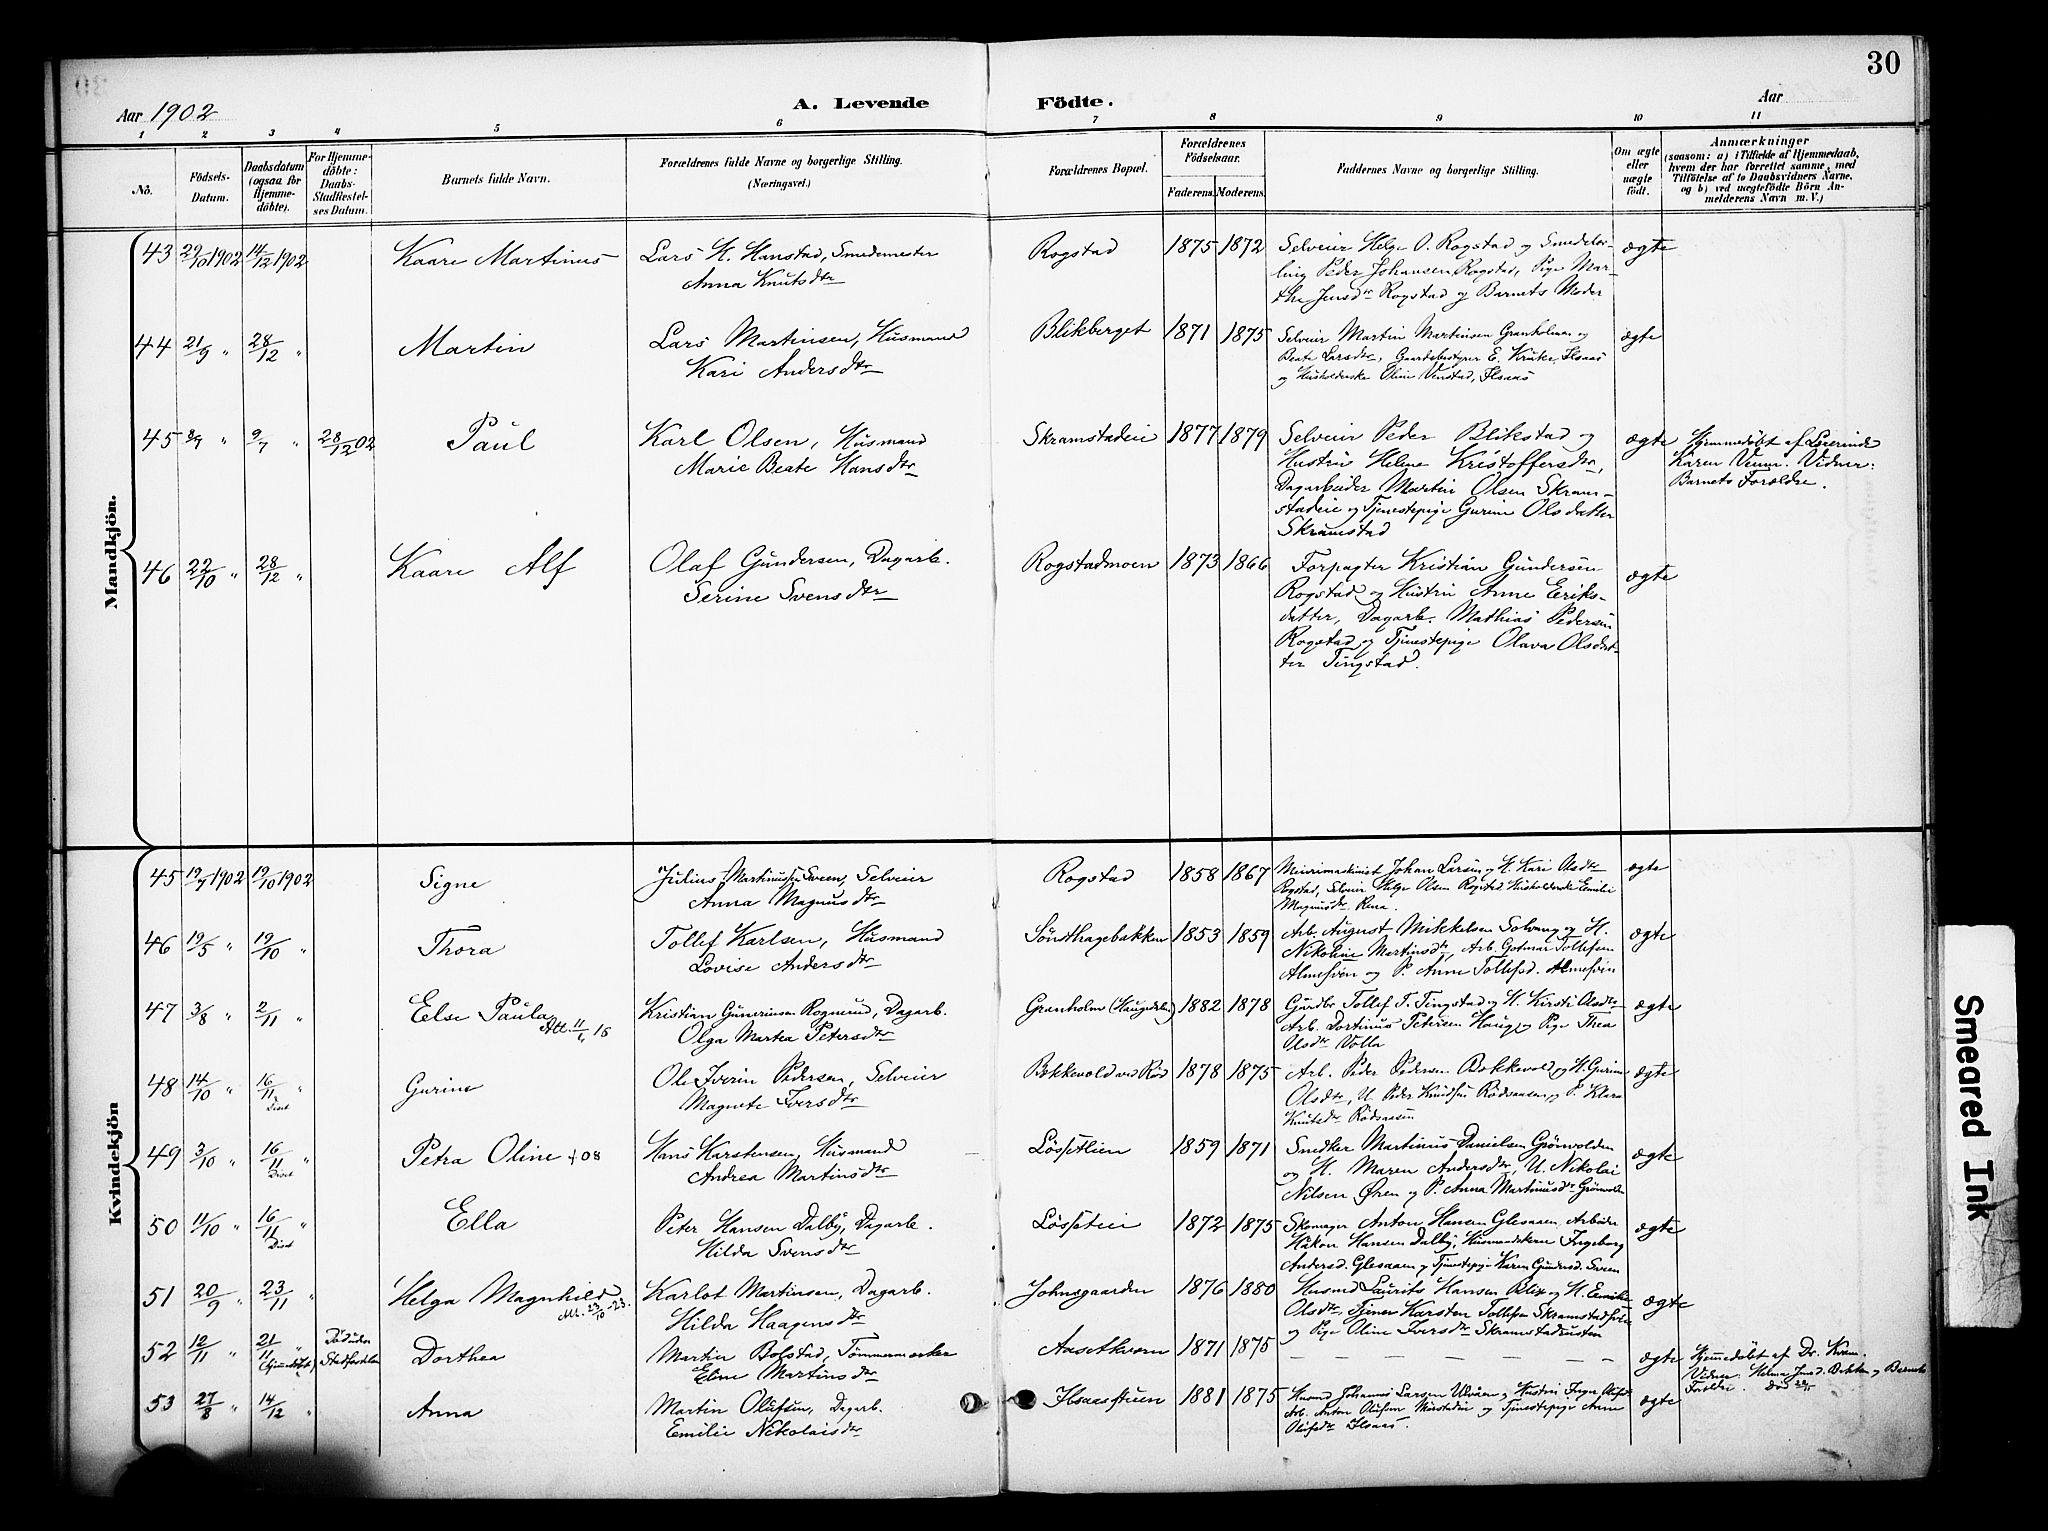 30
Aar 1902
A. Levende Födte.
Aar
1 2 3 4 5 6 7 8 9 10 11
No.
Födsels-Datum.
Daabsdatum (ogsaa for Hjemme-döbte).
For Hjemme-döbte: Daabs-Stadfæstelses Datum.
Barnets fulde Navn.
Forældrenes fulde Navne og borgerlige Stilling. (Næringsvei.)
Forældrenes Bopæl.
Forældrenes Födselsaar.
Faderens. Moderens.
Faddernes Navne og borgerlige Stilling.
Om ægte eller uægte födt.
Anmærkninger
(saasom: a) i Tilfælde af Hjemmedaab, hvem der har forrettet samme, med Tilföielse af to Daabsvidners Navne, og b) ved uægtefödte Börn Anmelderens Navn m. V.)
Mandkjön.
43 29/10 1902 14/12 1902 Kaare Martinus Lars H. Hanstad, Smedemester Rogstad 1875 1872 Selveier Helge O. Rogstad og Smedelær- ægte
Anna Knutsdtr ling Peder Johansen Rogstad, Pige Mar-
the Jensdtr Rogstad og Barnets Moder
44 21/9 " 28/12 " Martin Lars Martinsen, Husmand Blikberget 1871 1875 Selveier Martin Martinsen Granholmen og ægte
Kari Andersdtr Beate Larsdtr, Gaardsbestyrer E. Kruke, Ilsaas
og Husholderske Oline Venstad, Ilsaas
45 8/7 " 9/7 " 28/12 02 Paul Karl Olsen, Husmand Skramstadeie 1877 1879 Selveier Peder Blikstad og ægte Hjemmedöbt af Lærerinde
Marie Beate Hansdtr Hustru Helene Kristoffersdtr, Karen Venn. Vidner:
Dagarbeider Martin Olsen Skram- Barnets Forældre.
stadeie og Tjenestepige Gurine Olsdatter
Skramstad
46 22/10 " 28/12 " Kaare Alf Olaf Gundersen, Dagarb. Rogstadmoen 1873 1866 Forpagter Kristian Gundersen ægte
Serine Svensdtr Rogstad og Hustru Anne Eriks-
datter, Dagarb. Mathias Pedersen
Rogstad og Tjenestepige Olava Olsdat-
ter Tingstad.
Kvindekjön
45 19/7 1902 19/10 1902 Signe Julius Martinussen Sveen, Selveier Rogstad 1858 1867 Meierimaskinist Johan Larsen og H. Kari Olsdtr ægte
Anna Magnusdtr Rogstad, Selveier Helge Olsen Rogstad Husholderske Emilie
Magnusdtr Rena.
46 19/5 " 19/10 " Thora Tollef Karlsen, Husmand Sönsthagebakken 1853 1859 Arb. August Mikkelsen Solvang og H. ægte
Lovise Andersdtr Nikoline Martinsdtr, Arb. Gotmar Tollefsen
og P. Anne Tollefsd.
47 3/8 " 2/11 " Else Paula Att. 11/6 15 Kristian Gunerinsen Rognerud, Dagarb. Granholm (Haugedalen) 1882 1878 Gaardbr Tollef T. Tingstad og H. Kirsti Olsdtr ægte
Olga Martea Petersdtr Arb. Dortinus Petersen Haug og Pige Thea
Olsdtr Volla
48 14/10 " 16/11 " Diset Gurine Ole Iverin Pedersen, Selveier Bekkevold ved Röd 1878 1875 Arb. Peder Pedersen Bekkevold og H. Gurine ægte
Magnete Iversdtr Olsdtr, U. Peder Knudsen Rödsaasen og P. Klara
Knutsdtr Rödsaasen
49 3/10 " 16/11 " Diset Petra Oline +08 Hans Karstensen, Husmand Lössetlien 1859 1871 Snedker Martinus Danielsen Grönvolden ægte
Andrea Martinsdtr og H. Maren Andersdtr, U. Nikolai
Nilsen Øren og P. Anna Martinusdtr Grönvolden
50 11/10 " 16/11 " Diset Ella Peter Hansen Dalby, Dagarb. Lösseteie 1872 1875 Skomager Anton Hansen Glesaasen, Arbeider ægte
Hilda Svensdtr Håkon Hansen Dalby, Husmandskone Ingeborg
Andersd. Glesaasen og Tjenestepige Karen Gundersd. Sveen
51 20/9 " 23/11 " Helga Magnhild Att. 23/10-23. Karlot Martinsen, Dagarb. Johnsgaarden 1876 1880 Husmd Laurits Hansen Blix og H. Emilie ægte
Hilda Haagensdtr Olsdtr, Tjener Karsten Tollefsen
og Pige Oline Iversdtr Skramstadrusten
52 12/11 " 21/11 " (Hjemmedöbt) Död uden Stadfæstelse Dorthea Martin Bolstad, Tömmermærker Aasetkvern 1871 1875 — — — — — — ægte Hjemmedöbt af Dr. Kram.
Eline Martinsdtr Vidner: Helma Jensd. Bekken og Barnets
Forældre.
53 27/8 " 14/12 " Anna Martin Olufsen, Dagarb. Ilsaasstuen 1881 1875 Husmd Johannes Larsen Ulvåen og Hustru Inger Olufsd. ægte
Emilie Nikolaisdtr Arb. Anton Olufsen og Tjenestepige Anne
Olufsdtr Ilsaas.
Smeared Ink